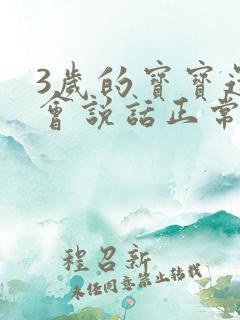 3歲的寶寶還
會說話正常
程召新
未经同意禁止转载